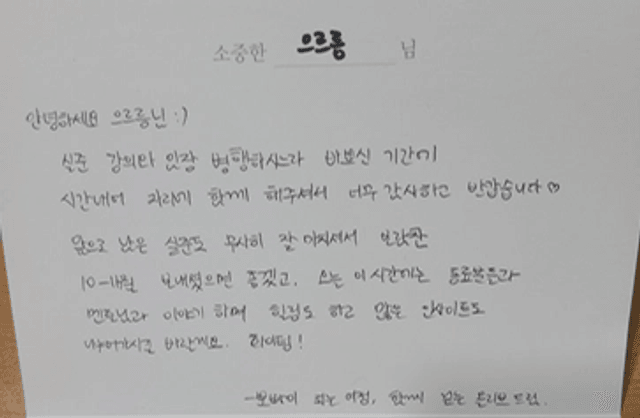 소중한 으르릉 님
안녕하세요 으르릉님 :)
실준 강의와 임장 병행하시느라 바쁘신 기간에
시간내어 자리에 함께 해주셔서 너무 감사하고 반갑습니다♡
앞으로 남은 실준도 무사히 잘 마치셔서 보람찬
10-11월 보내셨으면 좋겠고, 오는 이 시간에는 동료분들과
멘토님과 이야기 하며 힐링도 하고 얻는 인사이트도
나누어가시길 바랄게요. 화이팅!
함께 드림.